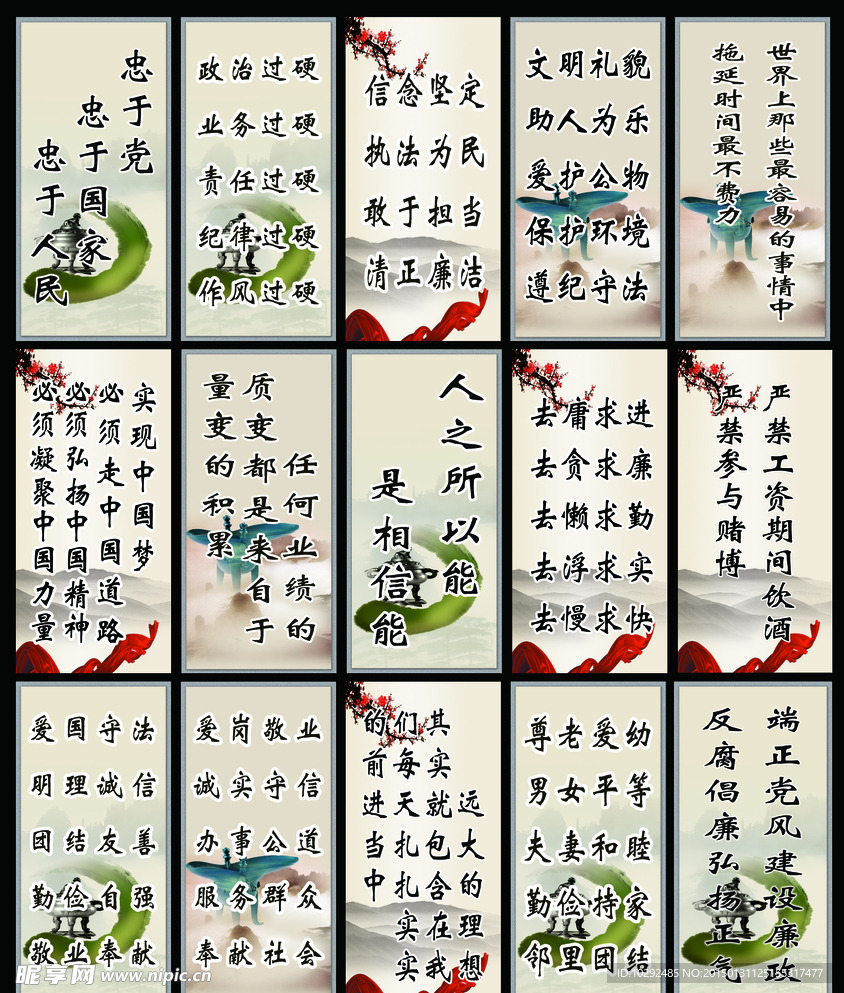 忠于党
忠于国家
忠于人民
政治过硬
业务过硬
责任过硬
纪律过硬
作风过硬
信念坚定
执法为民
敢于担当
清正廉洁
文明礼貌
助人为乐
爱护公物
保护环境
遵纪守法
世界上那些最容易的事情中
拖延时间最不费力
实现中国梦
必须走中国道路
必须弘扬中国精神
必须凝聚中国力量
任何业绩的
质变都是来自于
量变的积累
人之所以能
是相信能
去庸求进
去贪求廉
去懒求勤
去浮求实
去慢求快
严禁工资期间饮酒
严禁参与赌博
爱国守法
明理诚信
团结友善
勤俭自强
敬业奉献
爱岗敬业
诚实守信
办事公道
服务群众
奉献社会
远大的理想
其实就包含在我
们每天扎扎实实
的前进当中
尊老爱幼
男女平等
夫妻和睦
勤俭持家
邻里团结
端正党风建设廉政
反腐倡廉弘扬正气
昵享网 www.nipic.cn